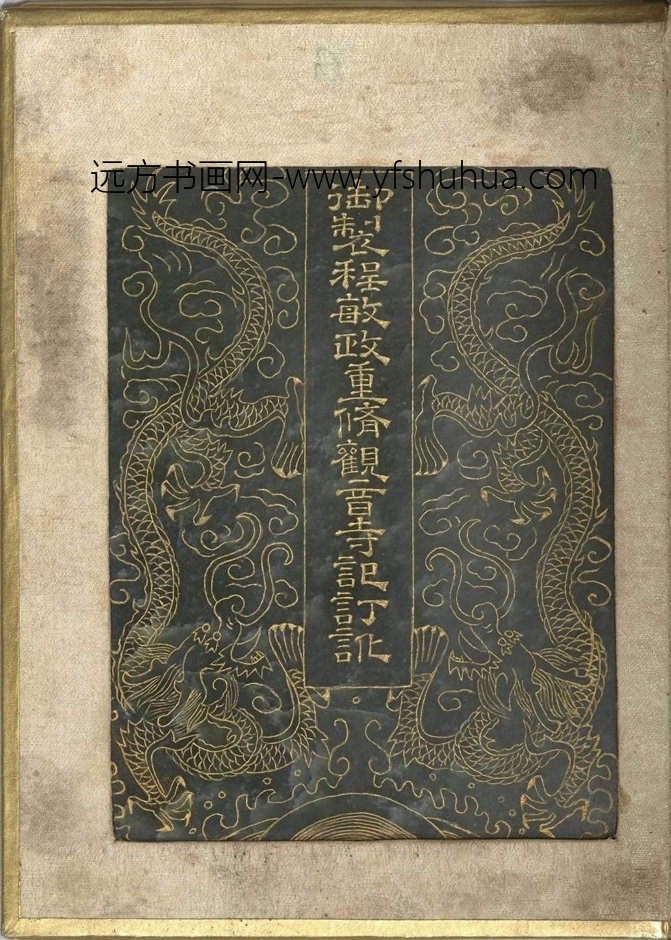 远方书画网-www.yfshuhua.com
御製程敏政重脩觀音寺記訂訛